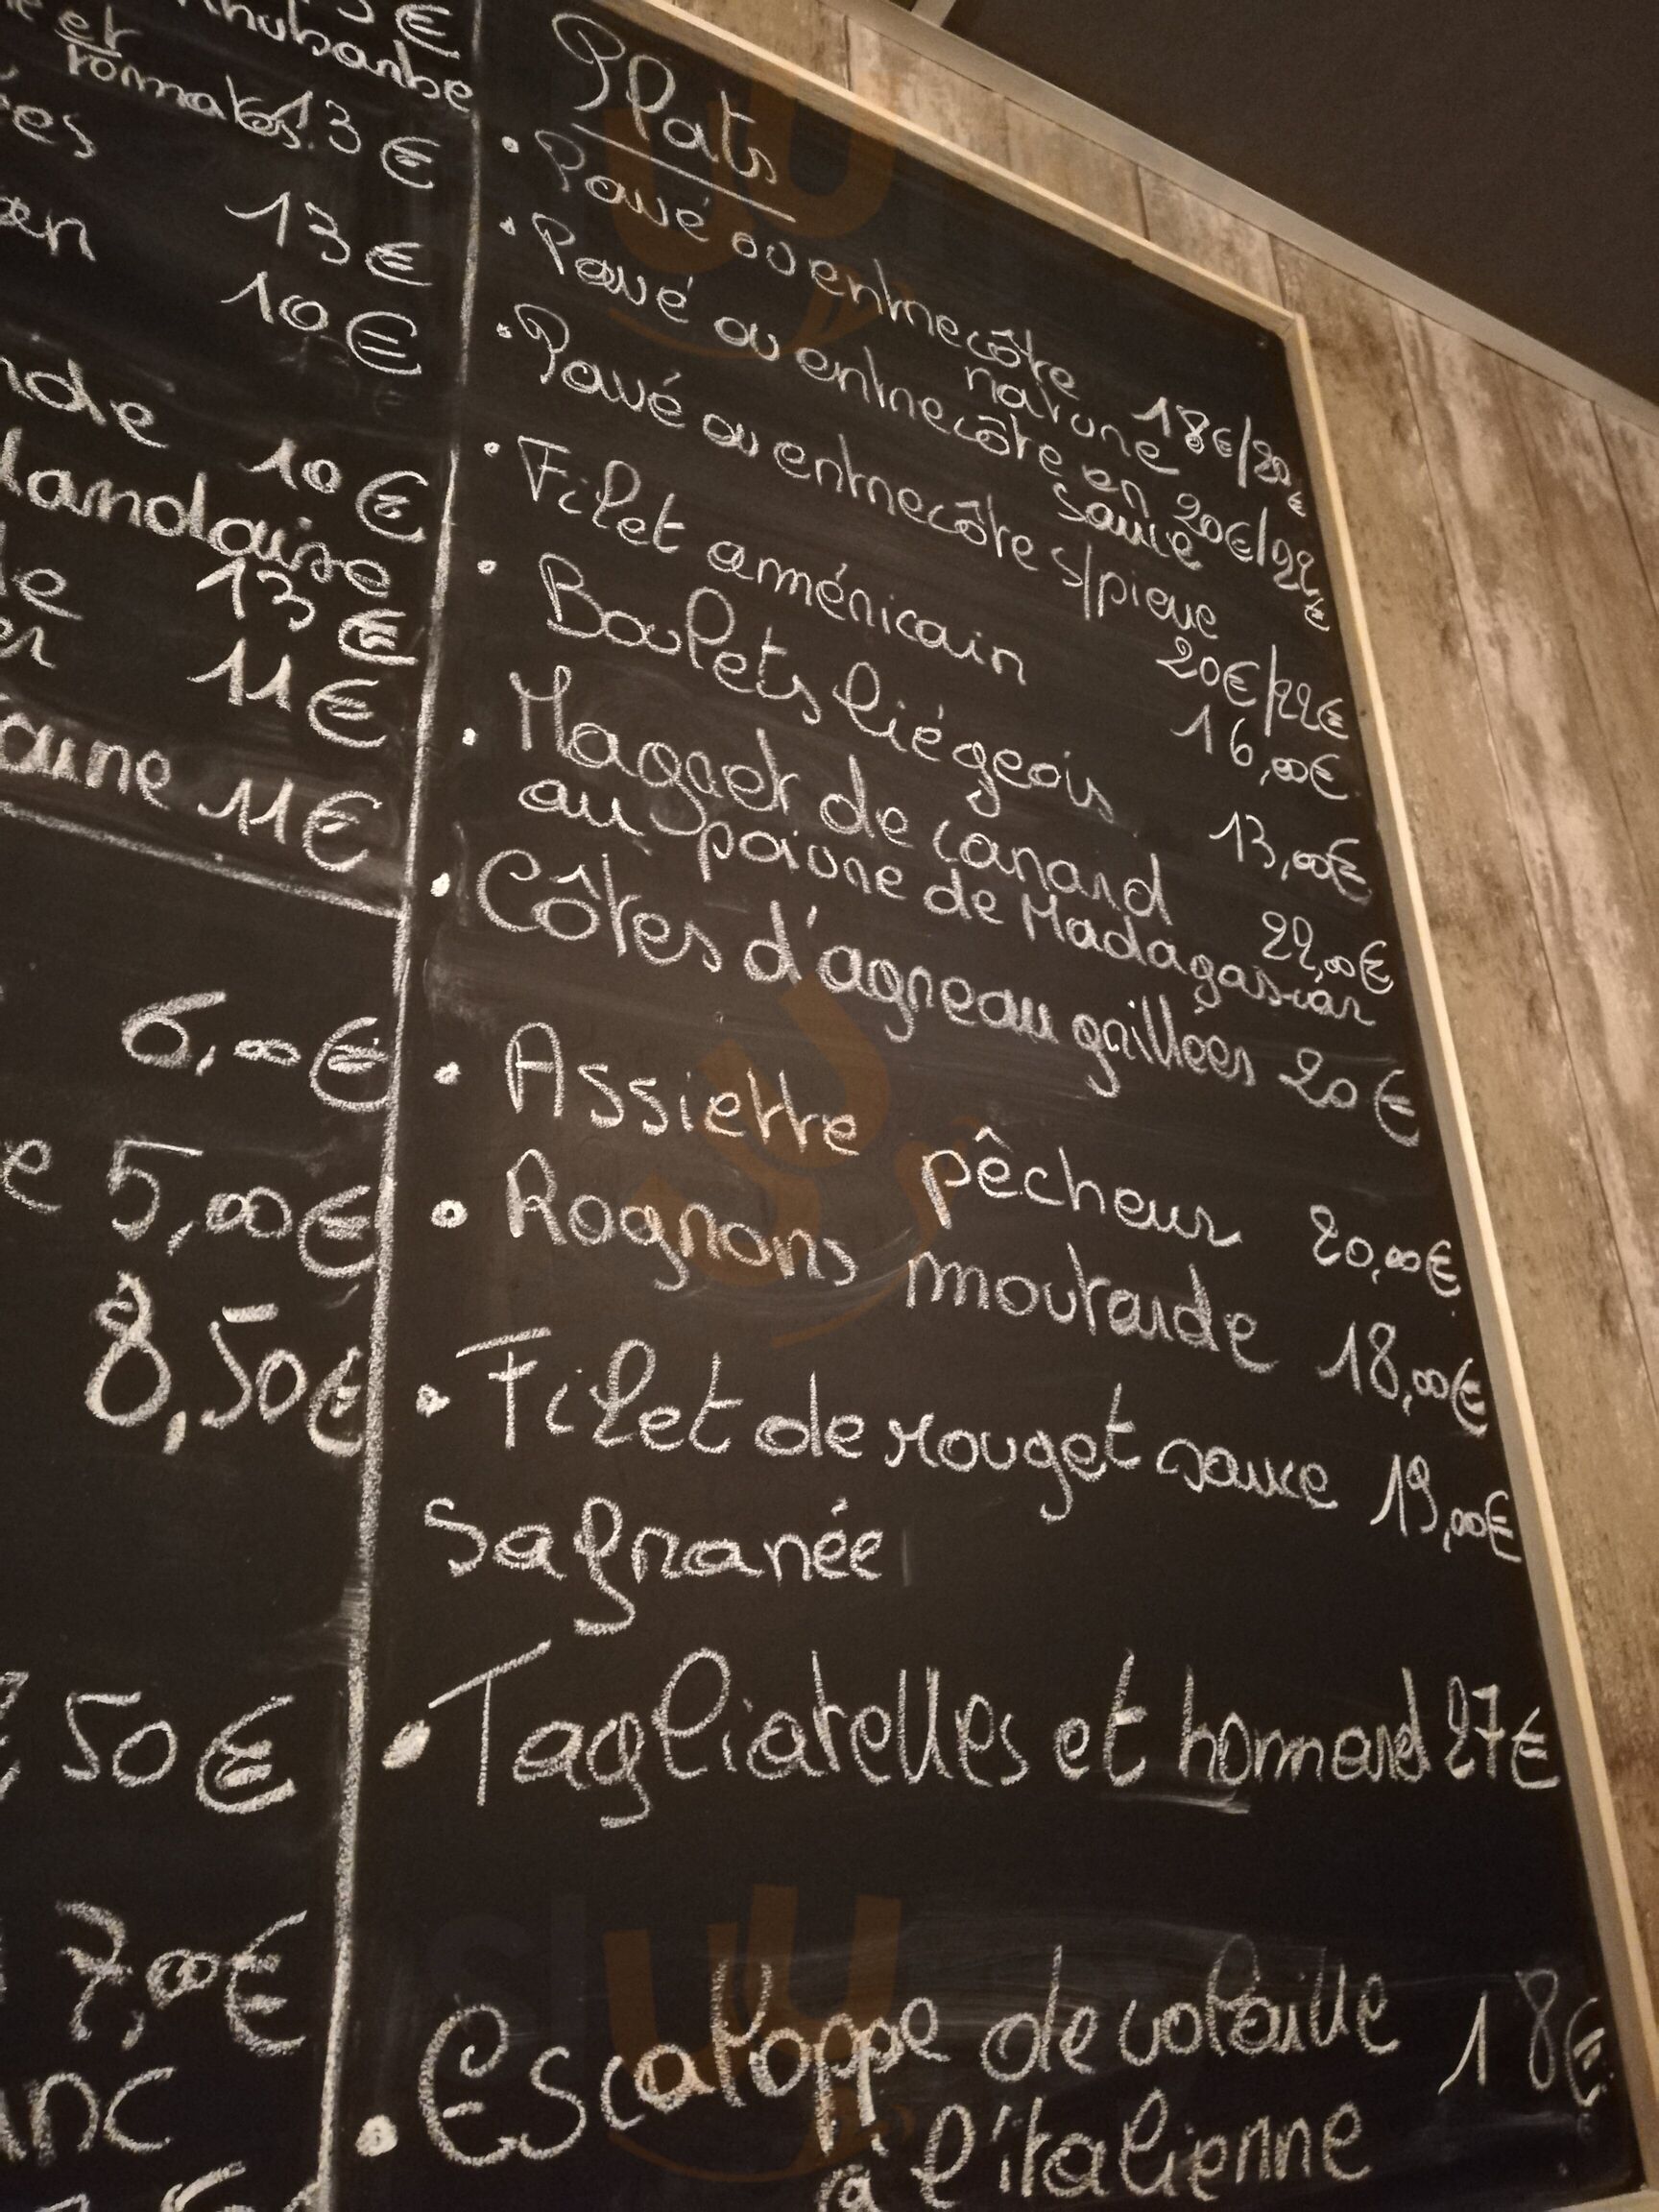 3€
Rhubarbe
et
tomates 13€
ées
an 13€
10€
nde
10€
landaise
13€
11€
aine 11€
6,00€
e 5,00€
8,50€
50€
7,00€
anc
Plats
• Pavé ou entrecôte
nature 18€/20€
• Pavé ou entrecôte en
sauce 20€/22€
• Pavé ou entrecôte s/pierre
20€/22€
• Filet américain 16,00€
• Boulets liégeois 13,00€
• Magret de canard 22,00€
au poivre de Madagascar
• Côtes d'agneau grillées 20€
• Assiette pêcheur 20,00€
• Rognons moutarde 18,00€
• Filet de rouget sauce 19,00€
Safranée
• Tagliatelles et homard 27€
• Escaloppe de volaille 18€
à l'italienne